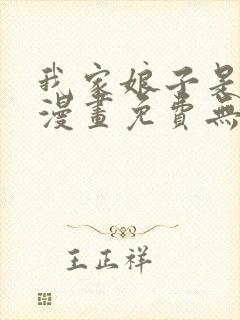 我家娘子是
漫畫免費無
王正祥